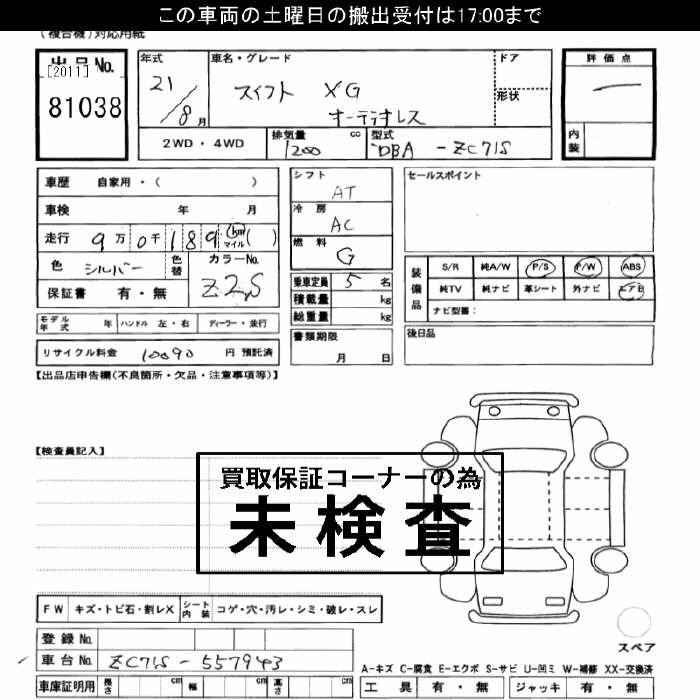 この車両の土曜日の搬出受付は17:00まで
(複合機)対応用紙
出品No.
[2011]
81038
年式
21/8月
車名・グレード
スイフト XG
オーディオレス
ドア
形状
評価点
内装
2WD・4WD
排気量 1200 cc
型式 DBA - ZC71S
車歴 自家用・( )
車検 年 月
走行 9万0千189 km マイル( )
色 シルバー 色替
カラーNo. Z2S
保証書 有・無
シフト AT
冷房 AC
燃料 G
乗車定員 5 名
積載量 kg
総重量 kg
書類期限
月 日
セールスポイント
装備品
S/R 純A/W P/S P/W ABS
純TV 純ナビ 革シート 外ナビ エアB
ナビ型番:
後日品
モデル年式 年 ハンドル 左・右 ディーラー・並行
リサイクル料金 10090 円 預託済
【出品店申告欄(不良箇所・欠品・注意事項等)】
【検査員記入】
買取保証コーナーの為
未検査
FW キズ・トビ石・割レX シート内装 コゲ・穴・汚レ・シミ・破レ・スレ
登録No.
車台No. ZC71S-557943
車庫証明用 長さ cm 幅 cm 高さ cm
スペア
A-キズ C-腐食 E-エクボ S-サビ U-凹ミ W-補修 XX-交換済
工具 有・無 ジャッキ 有・無